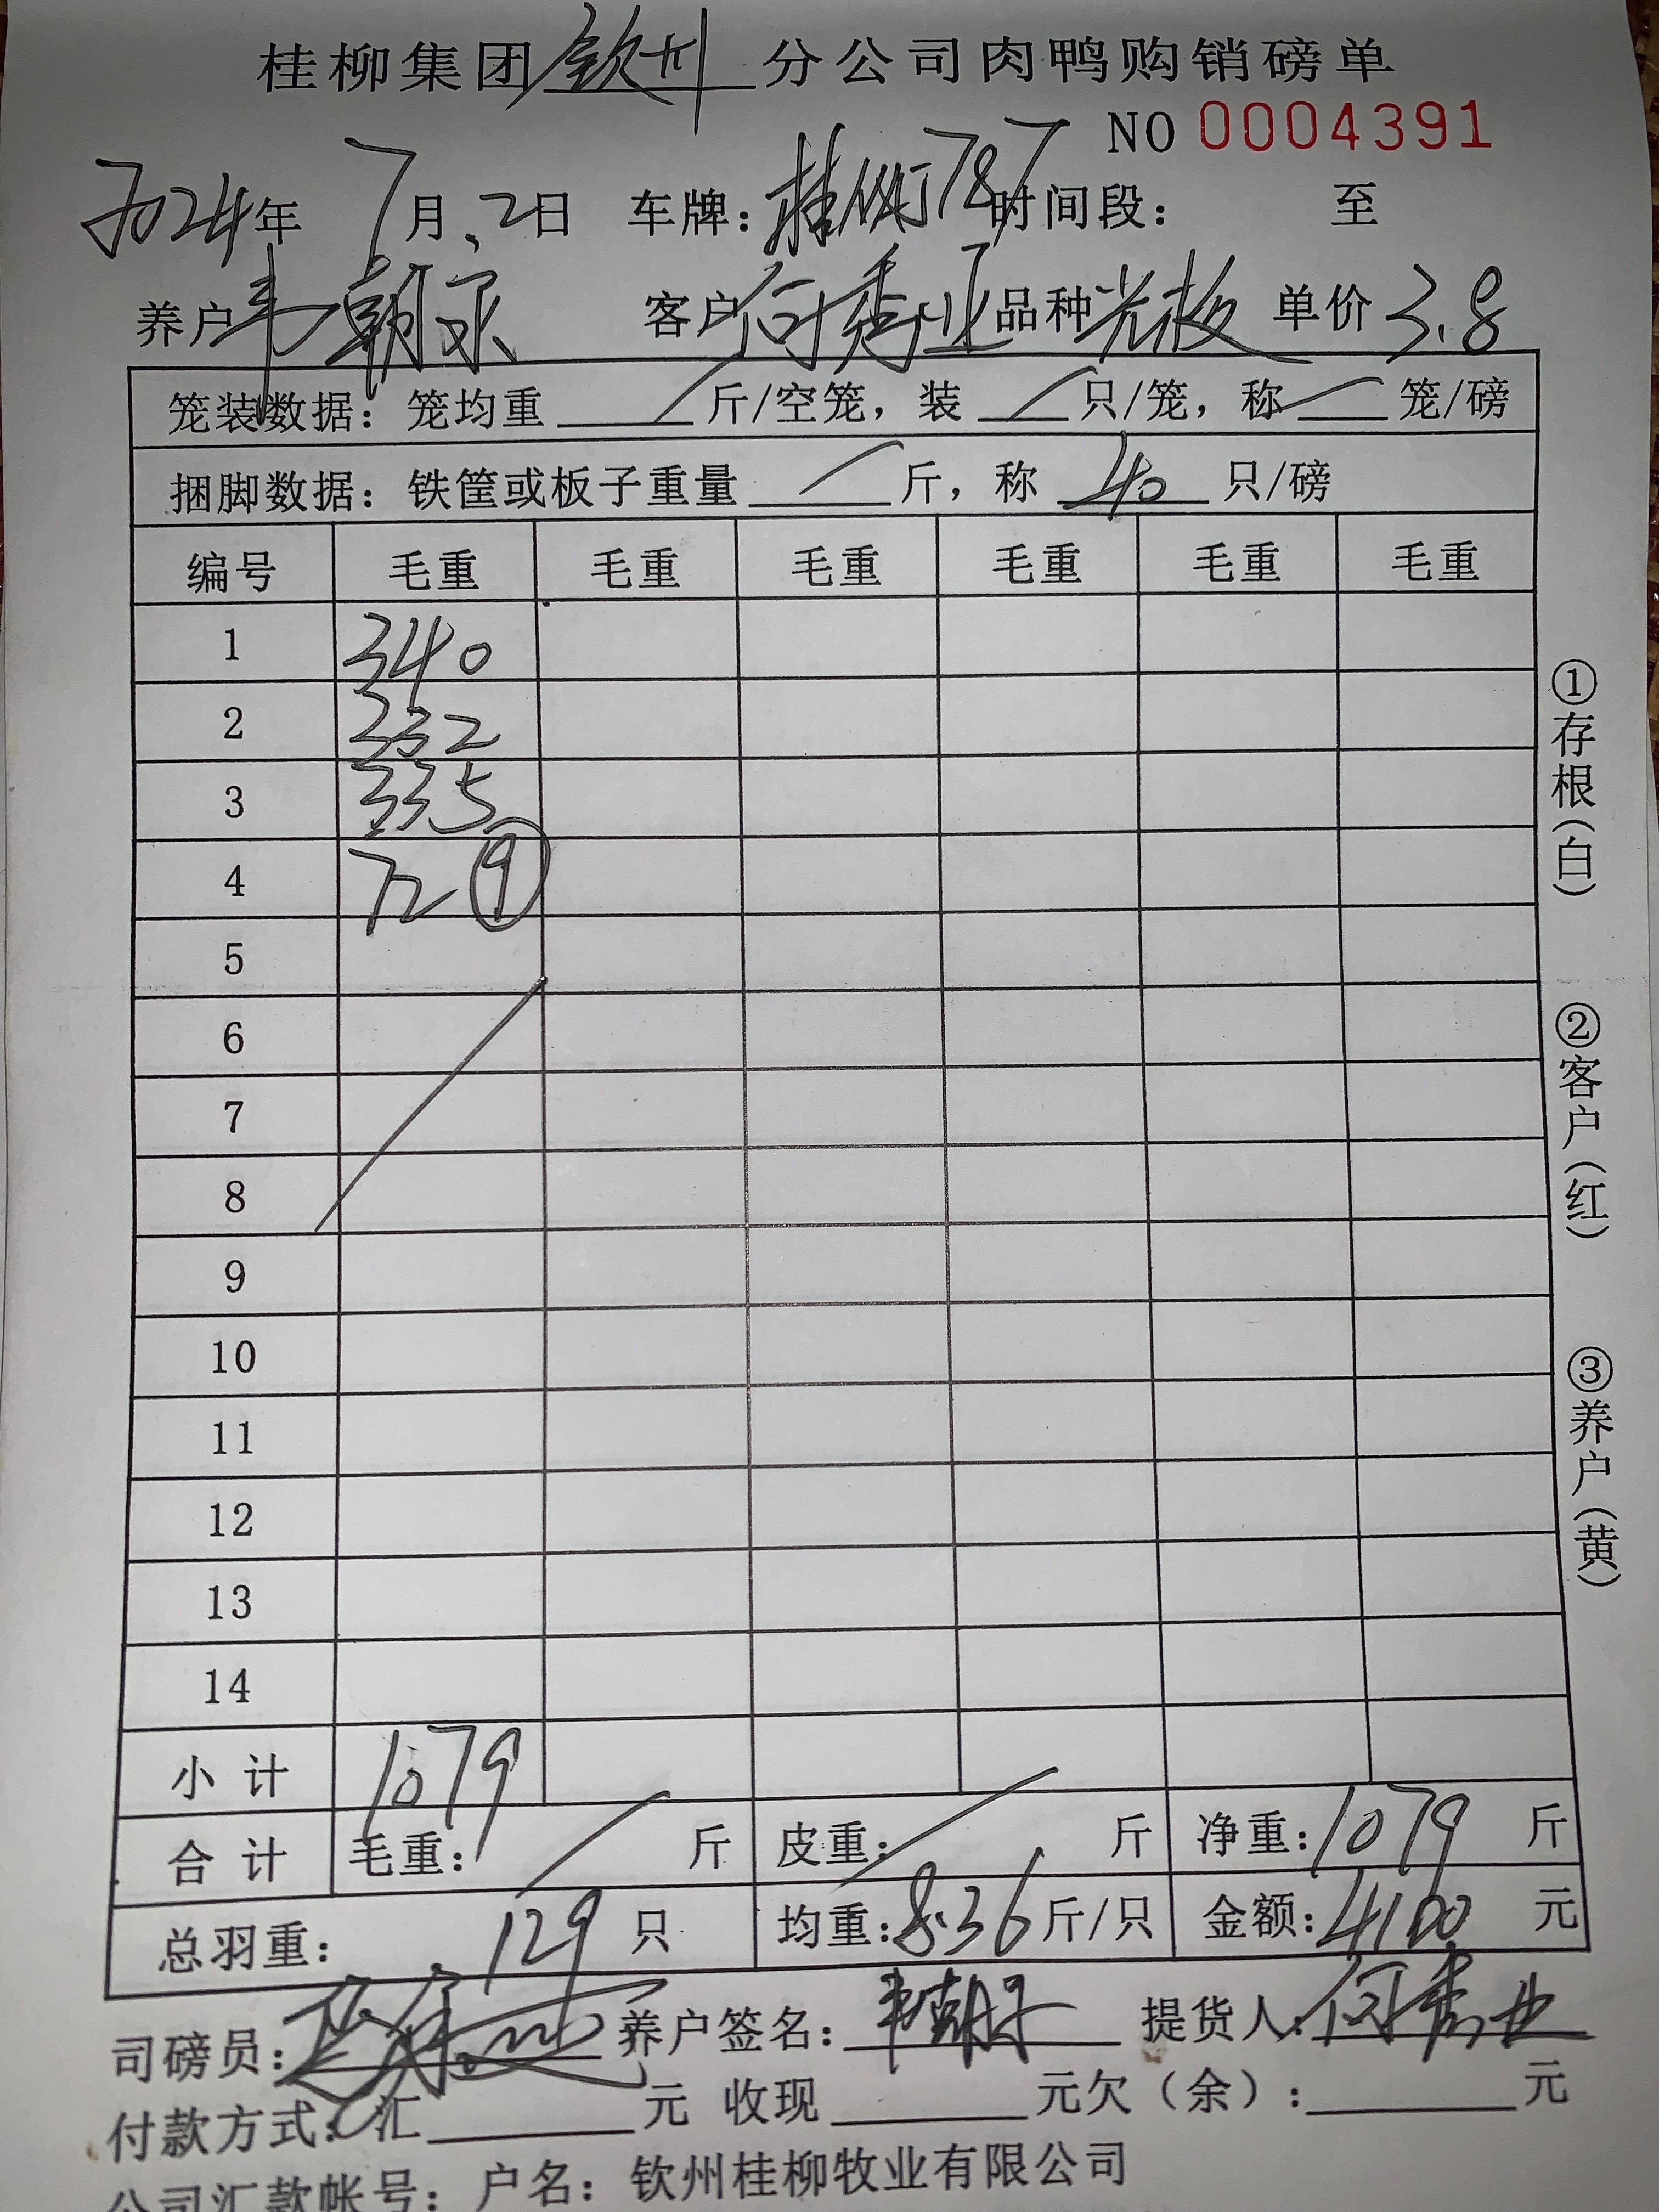 桂柳集团钦州分公司肉鸭购销磅单
NO 0004391
2024年 7月.2日 车牌: 787 时间段: 至
养户 韦朝 客户 何秀业 品种 光板 单价 3.8
笼装数据: 笼均重 / 斤/空笼, 装 / 只/笼, 称 / 笼/磅
捆脚数据: 铁筐或板子重量 / 斤, 称 40 只/磅
编号 毛重 毛重 毛重 毛重 毛重 毛重
1 340
2 332
3 335
4 72 ⑨
5
6
7
8
9
10
11
12
13
14
小计 1079
合计 毛重: / 斤 皮重: / 斤 净重: 1079 斤
总羽重: 129 只 均重: 8.36 斤/只 金额: 4100 元
司磅员: 养户签名: 韦朝 提货人: 何秀业
付款方式: 汇 元 收现 元欠(余): 元
公司汇款帐号: 户名: 钦州桂柳牧业有限公司
①存根(白)
②客户(红)
③养户(黄)